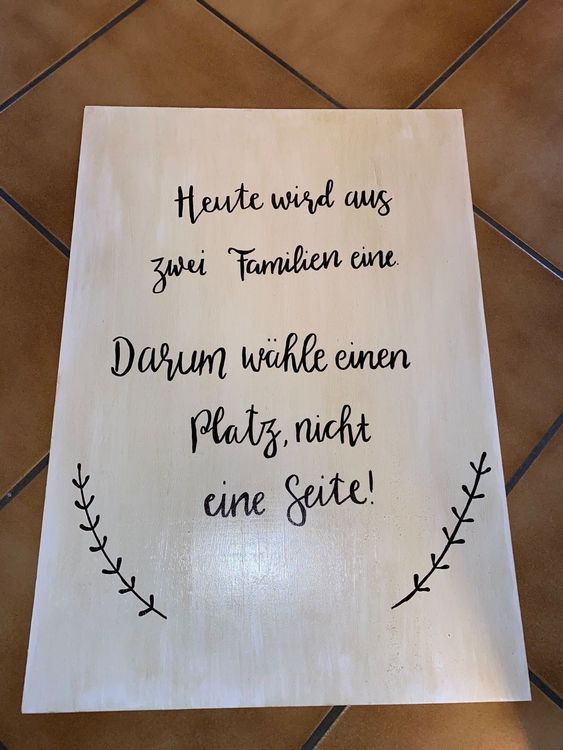 Heute wird aus
zwei Familien eine.
Darum wähle einen
Platz, nicht
eine Seite!